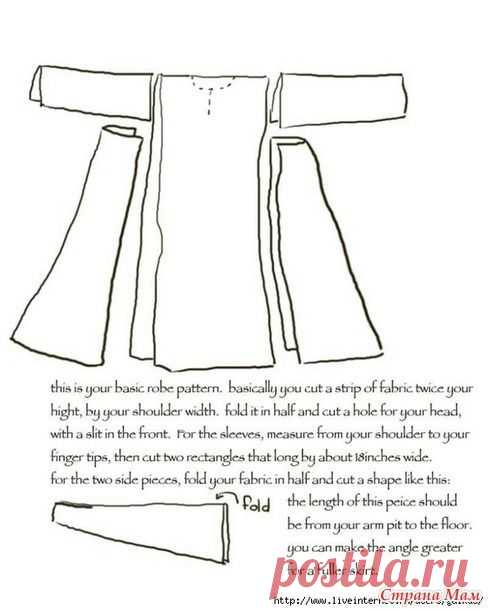 this is your basic robe pattern. basically you cut a strip of fabric twice your
hight, by your shoulder width. fold it in half and cut a hole for your head,
with a slit in the front. For the sleeves, measure from your shoulder to your
finger tips, then cut two rectangles that long by about 18inches wide.
for the two side pieces, fold your fabric in half and cut a shape like this:
fold
the length of this peice should
be from your arm pit to the floor.
you can make the angle greater
for a fuller skirt.
postila.ru
Страна Мам